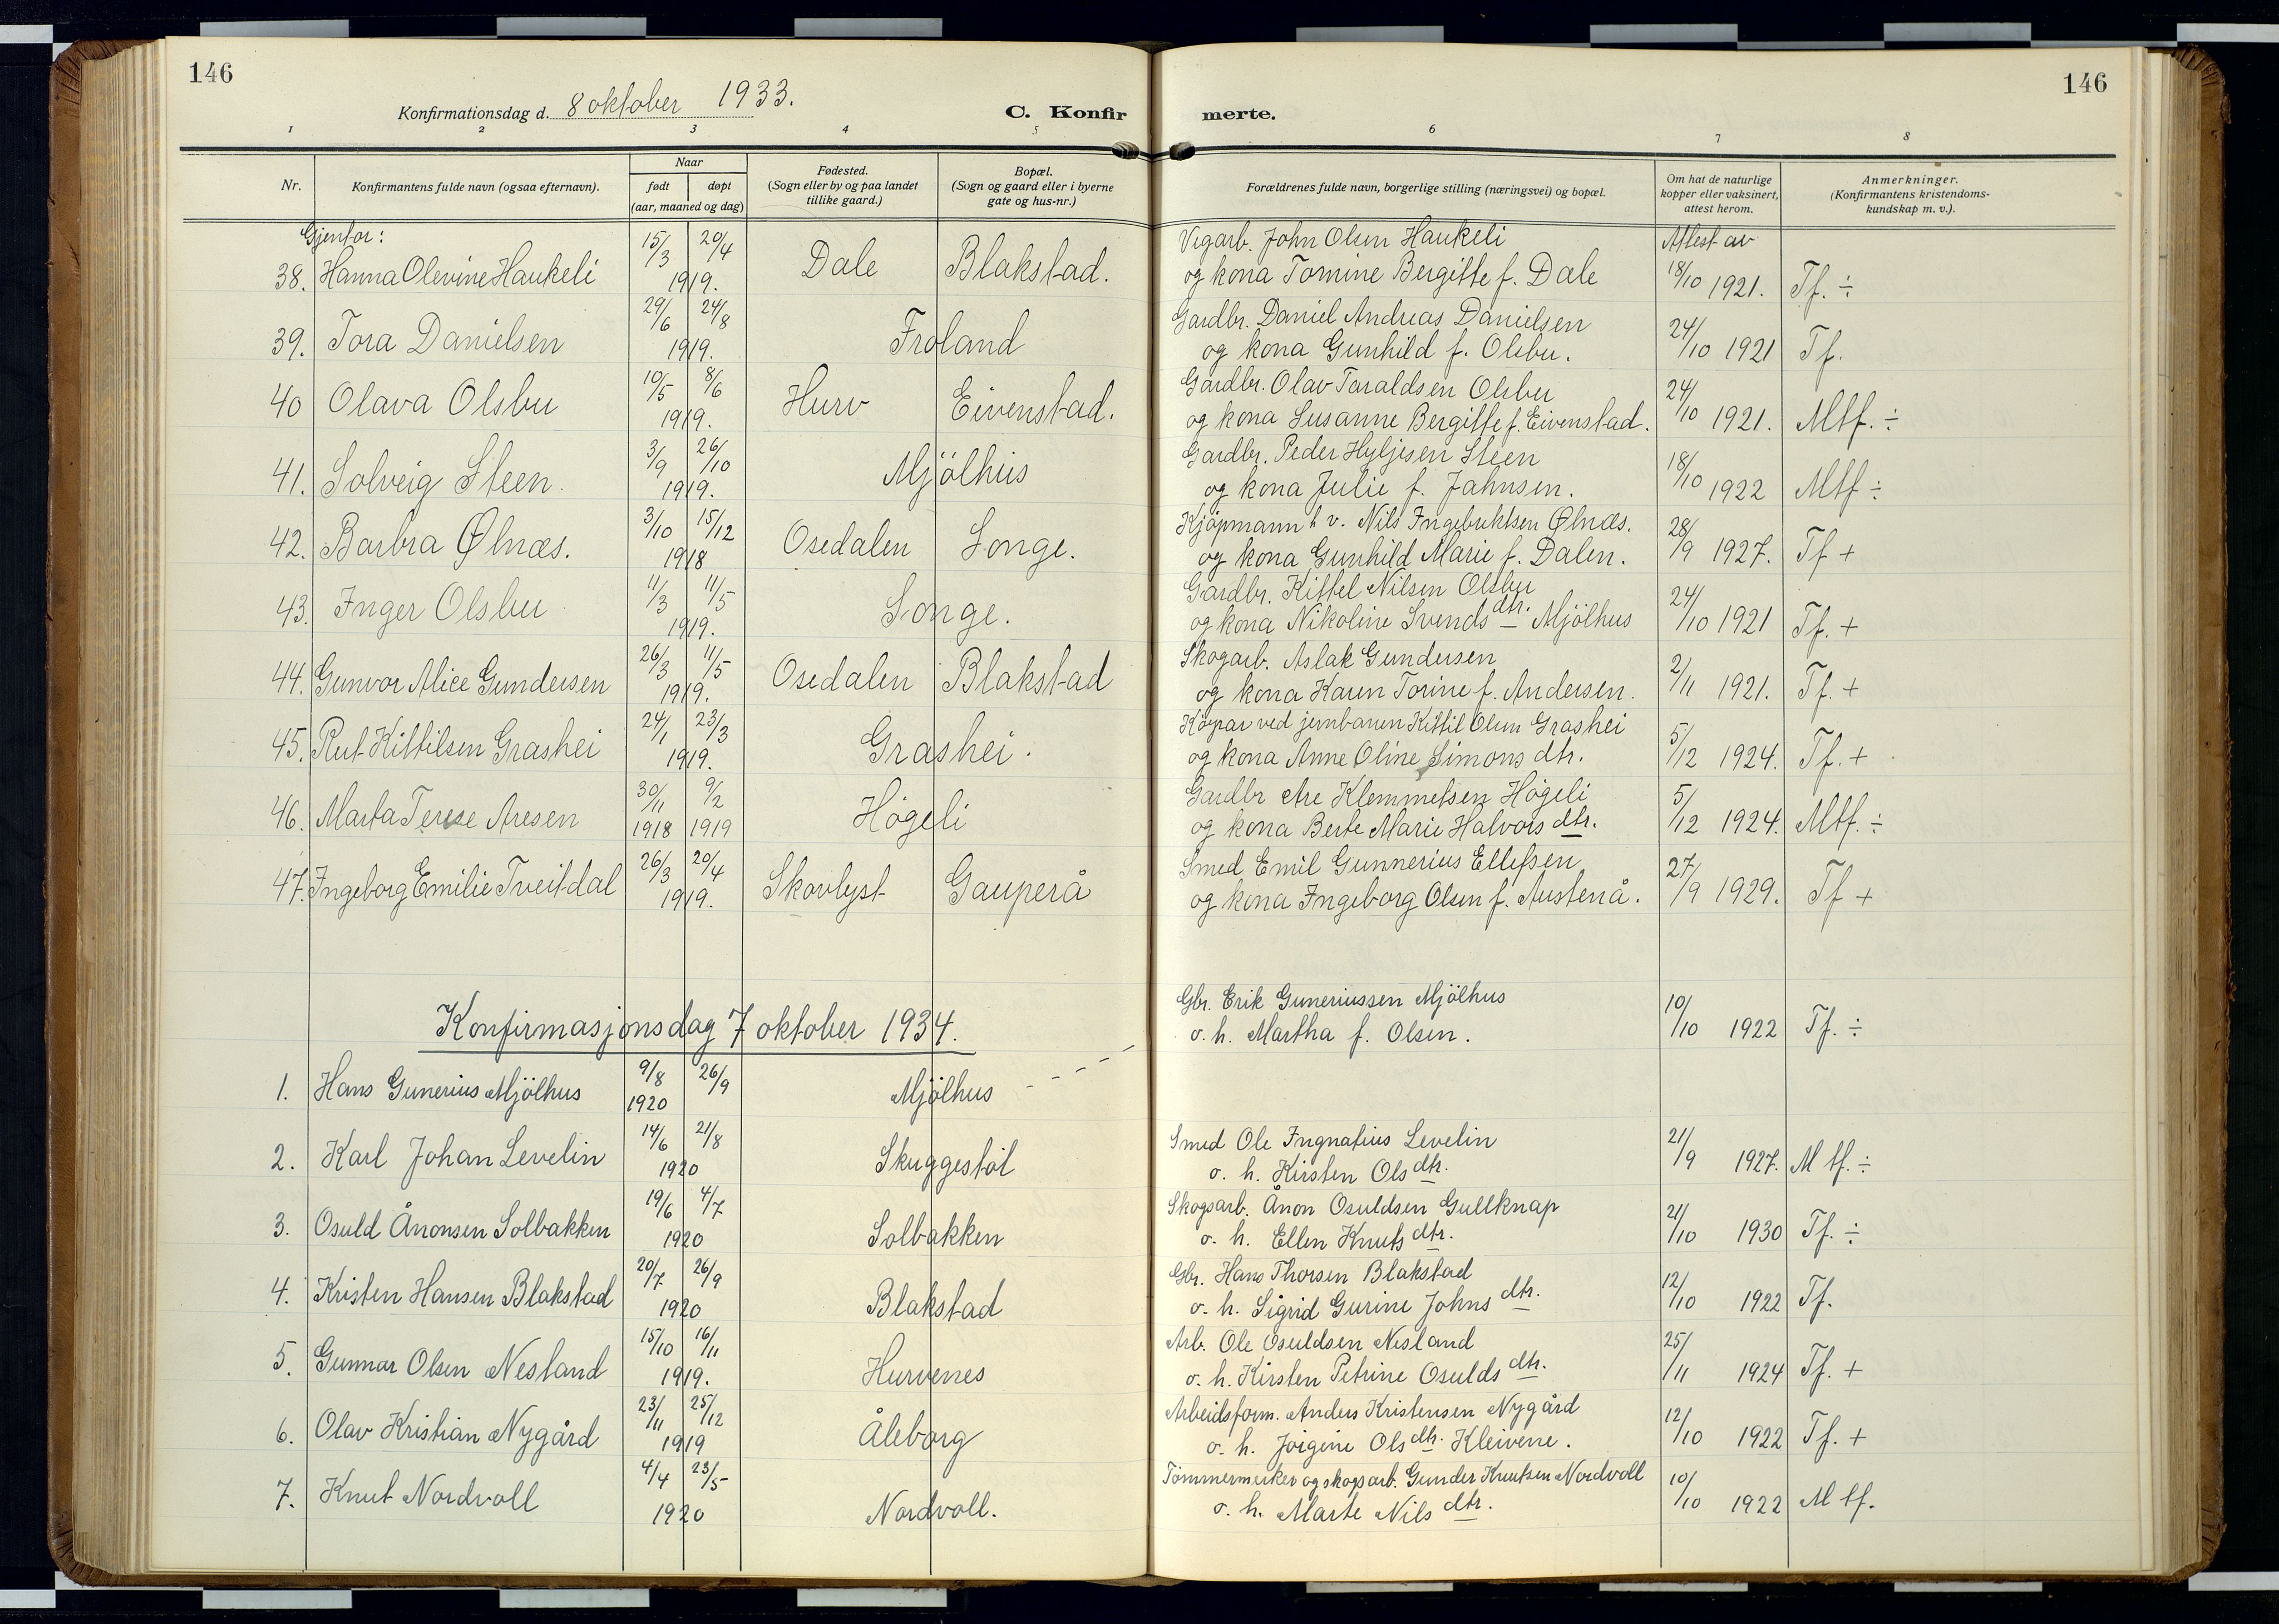 146
146
Konfirmationsdag d. 8 oktober 1933.
C. Konfirmerte.
1 2 3 4 5 6 7 8
Nr.
Konfirmantens fulde navn (ogsaa efternavn).
Naar
født døpt
(aar, maaned og dag)
Fødested.
(Sogn eller by og paa landet
tillike gaard.)
Bopæl.
(Sogn og gaard eller i byerne
gate og hus-nr.)
Forældrenes fulde navn, borgerlige stilling (næringsvei) og bopæl.
Om hat de naturlige
kopper eller vaksinert,
attest herom.
Anmerkninger.
(Konfirmantens kristendoms-
kundskap m. v.).
Gjentor: 15/3 20/4 Vegarb. John Olsen Haukeli Attest av
38. Hanna Olevine Haukeli 1919. Dale Blakstad. og kona Tomine Bergitte f. Dale 18/10 1921. Tf. ÷
29/6 24/8 Gardbr. Daniel Andreas Danielsen
39. Tora Danielsen 1919. Froland og kona Gunhild f. Olsbu. 24/10 1921 Tf.
10/5 8/6 Gardbr. Olav Taraldsen Olsbu
40 Olava Olsbu 1919. Hurv Eivenstad. og kona Susanne Bergitte f. Eivenstad. 24/10 1921. Mtf. ÷
3/9 26/10 Gardbr. Peder Steen
41. Solveig Steen 1919. Mjölhus og kona Julie f. Jahnsen. 18/10 1922 Mtf ÷
3/10 15/12 Kjöpmann h. v. Nils Ingebrektsen Ølnæs.
42. Barbra Ølnæs. 1918 Osedalen Songe. og kona Gunhild Marie f. Dalen. 28/9 1927. Tf +
11/3 11/5 Gardbr. Kittel Nilsen Olsbu
43. Inger Olsbu 1919. Songe. og kona Nikoline Svendsdtr. Mjölhus 24/10 1921 Tf. +
26/3 11/5 Skogarb. Aslak Gundersen
44. Gunvor Alice Gundersen 1919. Osedalen Blakstad og kona Karen Torine f. Andersen. 2/11 1921. Tf. +
24/1 23/3 ved jernbanen Kittil Olsen Grashei
45. Rut Kittilsen Grashei 1919. Grashei. og kona Anne Oline Simonsdtr. 5/12 1924. Tf. +
30/11 9/2 Gardbr Are Klemmetsen Högeli
46. Marta Terese Aresen 1918 1919 Högeli og kona Berte Marie Halvorsdtr. 5/12 1924. Mtf. ÷
26/3 20/4 Smed Emil Gunnerius Ellefsen
47. Ingeborg Emilie Tveitdal 1919. Skovlyst Gauperå og kona Ingeborg Olsen f. Austenå. 27/9 1929. Tf +
Konfirmasjonsdag 7 oktober 1934.
Gbr. Erik Guneriussen Mjölhus
o. h. Martha f. Olsen. 10/10 1922 Tf. ÷
9/8 26/9
1. Hans Gunerius Mjölhus 1920 Mjölhus
14/6 21/8 Smed Ole Ingnatius Levelin
2. Karl Johan Levelin 1920 Skuggestöl o. h. Kirsten Olsdtr. 21/9 1927. M tf. ÷
19/6 4/7 Skogsarb. Ånon Osuldsen Gullknap
3. Osuld Ånonsen Solbakken 1920 Solbakken o. h. Ellen Knutsdtr. 21/10 1930 Tf. ÷
20/7 26/9 Gbr. Hans Thorsen Blakstad
4. Kristen Hansen Blakstad 1920 Blakstad o. h. Sigrid Gurine Johnsdtr. 12/10 1922 Tf.
15/10 16/11 Arb. Ole Osuldsen Nesland
5. Gunnar Olsen Nesland 1919. Hurvenes o. h. Kirsten Petrine Osuldsdtr. 25/11 1924 Tf. +
23/11 25/12 Arbeidsform. Anders Kristensen Nygård
6. Olav Kristian Nygård 1919 Åleborg o. h. Jörgine Olsdtr. Kleivene. 12/10 1922 Tf. +
4/4 23/5 Tömmermerker og skogsarb. Gunder Knutsen Nordvoll
7. Knut Nordvoll 1920 Nordvoll. o. h. Marte Nilsdtr. 10/10 1922 M tf.